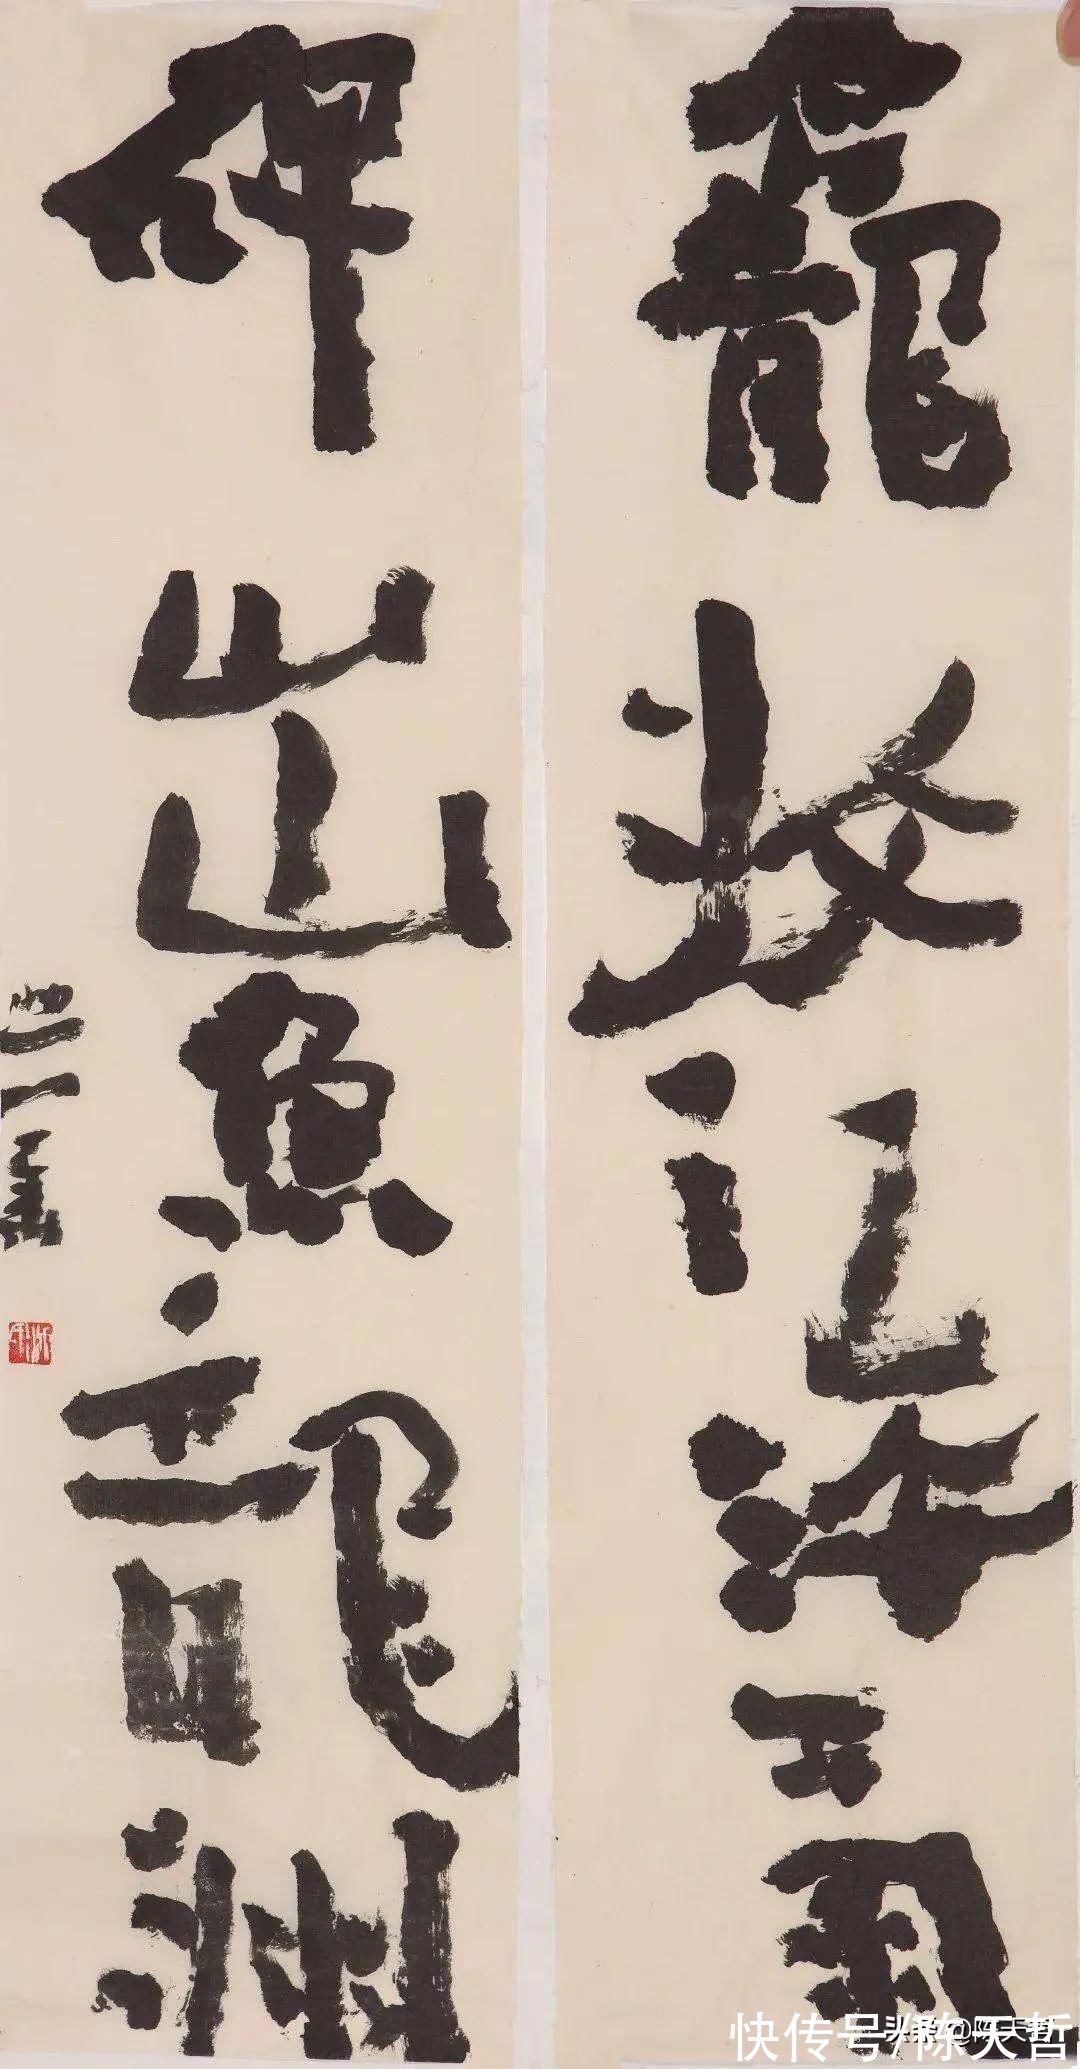 龕收江海氣
碑出魚龍淵
快传号/陈天哲